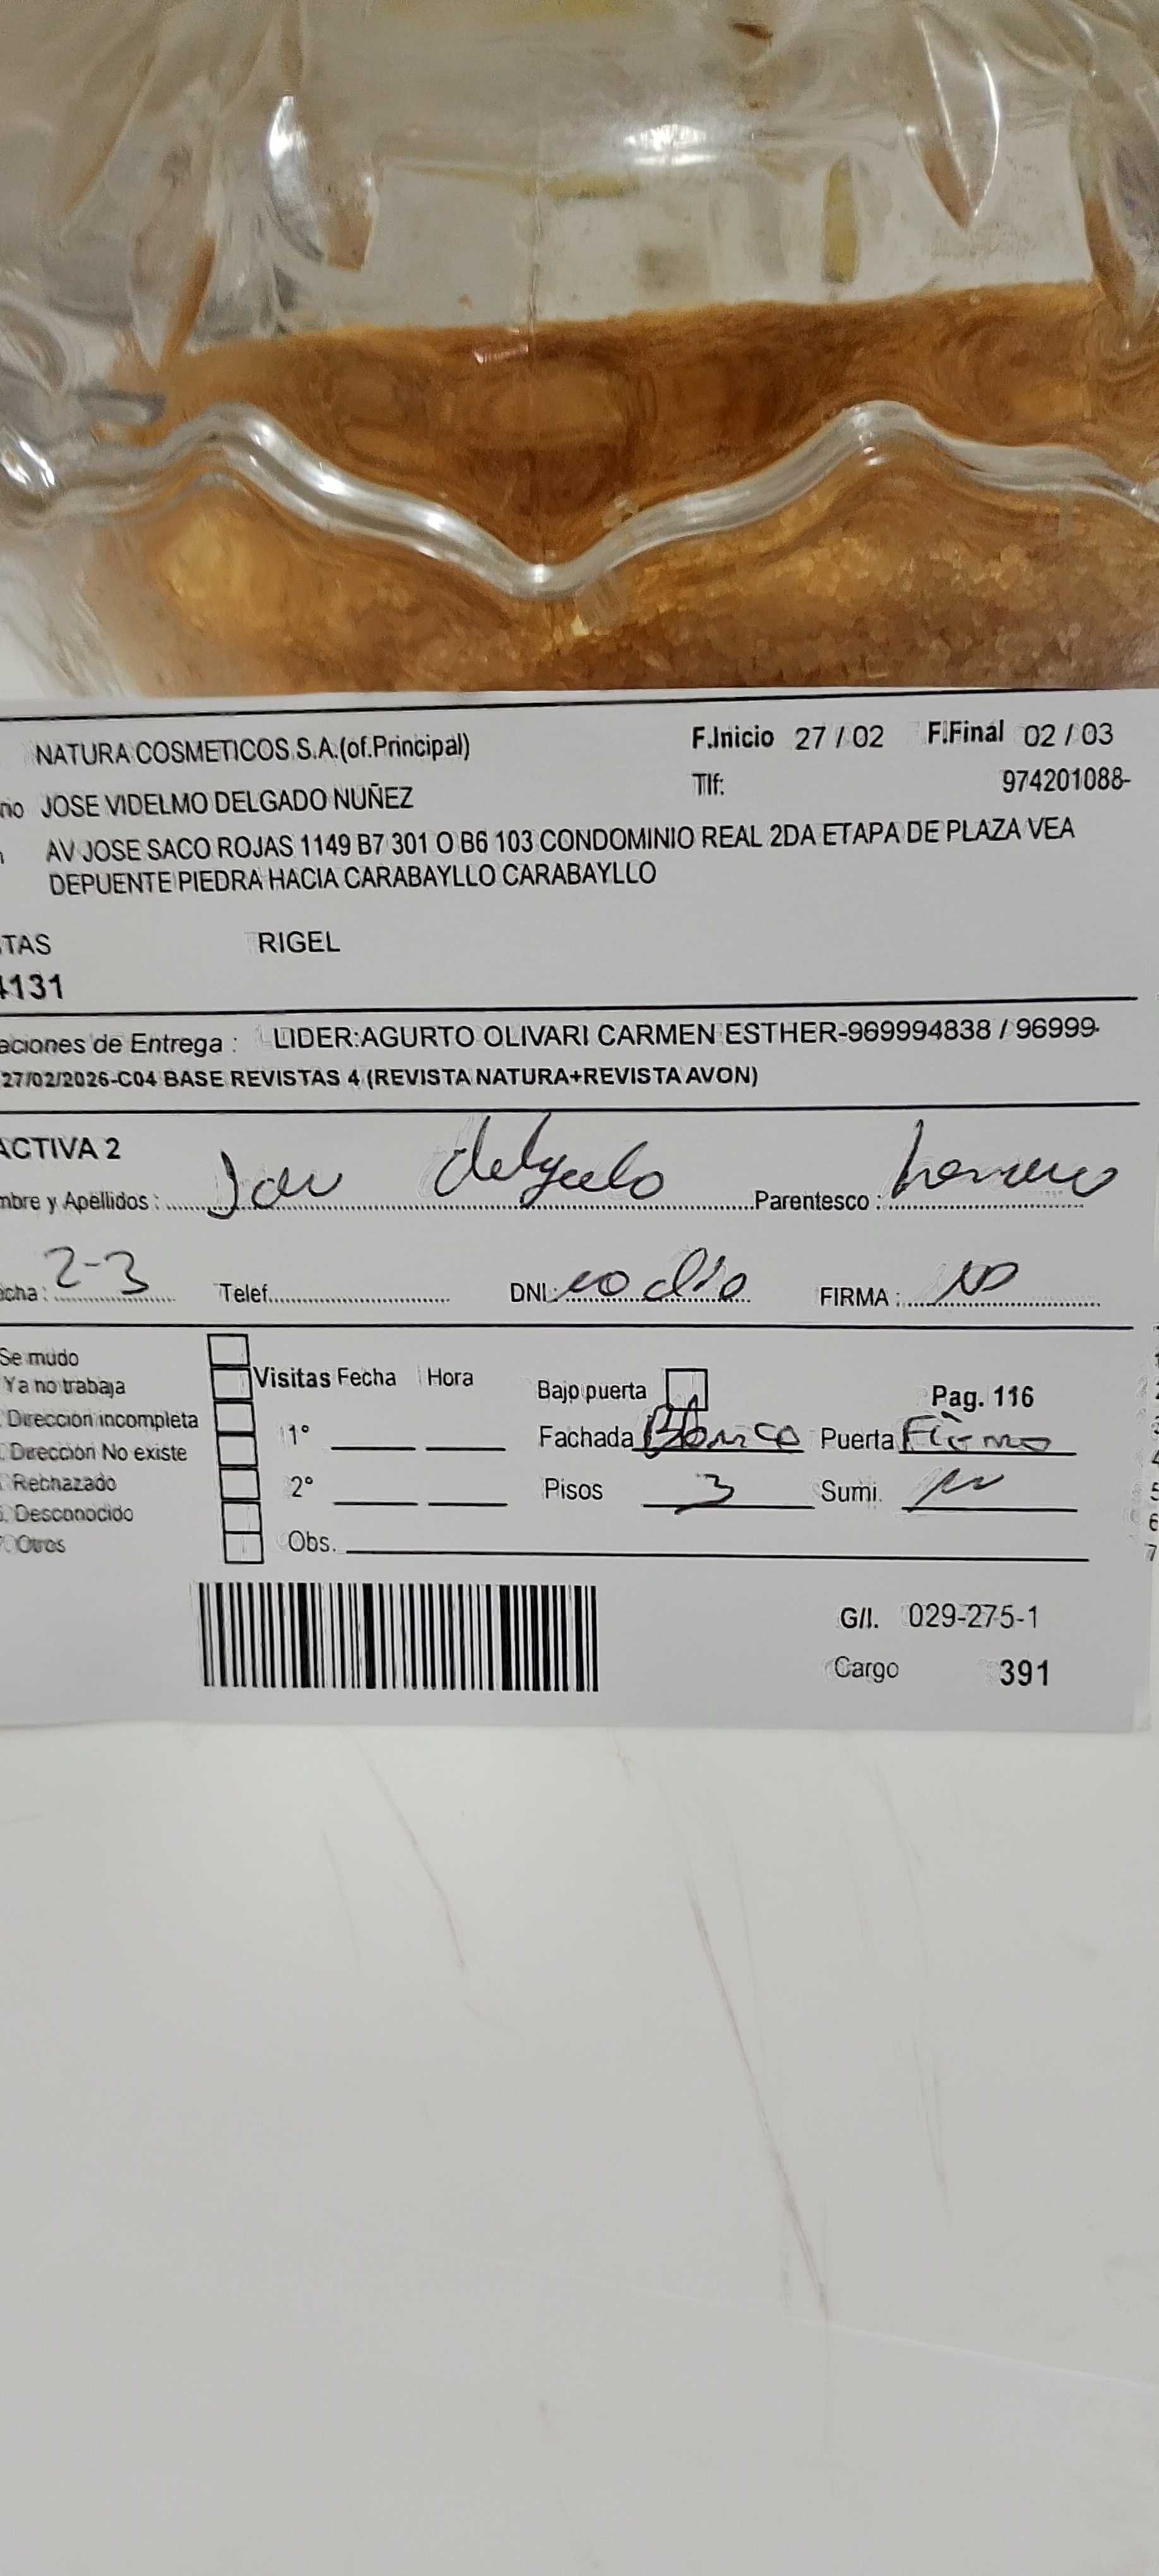 NATURA COSMETICOS S.A.(of.Principal) F.Inicio 27 / 02 F.Final 02 / 03
rio JOSE VIDELMO DELGADO NUÑEZ Tlf: 974201088-
AV JOSE SACO ROJAS 1149 B7 301 O B6 103 CONDOMINIO REAL 2DA ETAPA DE PLAZA VEA
DEPUENTE PIEDRA HACIA CARABAYLLO CARABAYLLO
TAS RIGEL
4131
aciones de Entrega : LIDER:AGURTO OLIVARI CARMEN ESTHER-969994838 / 96999-
27/02/2026-C04 BASE REVISTAS 4 (REVISTA NATURA+REVISTA AVON)
ACTIVA 2
mbre y Apellidos : delgado Parentesco :
echa : 2-3 Telef. DNI: no dio FIRMA :
Se mudo
Ya no trabaja Visitas Fecha Hora Bajo puerta Pag. 116
Dirección incompleta 1° Fachada Blanco Puerta Fierro
Dirección No existe
Rechazado 2° Pisos 3 Sumi.
Desconocido
Otros Obs.
G/I. 029-275-1
Cargo 391